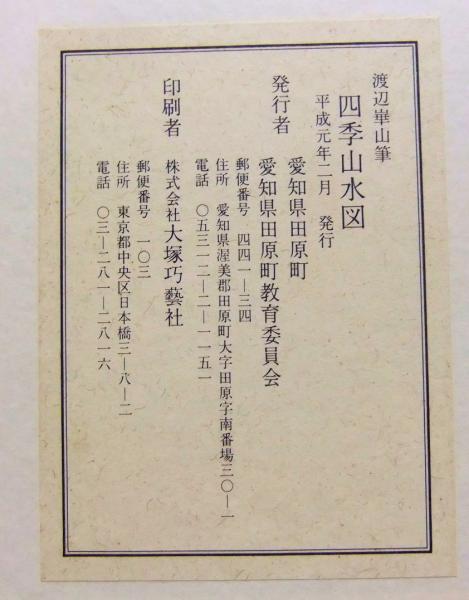 渡辺崋山筆
四季山水図
平成元年二月　発行
発行者　愛知県田原町
愛知県田原町教育委員会
郵便番号　四四一―三四
住所　愛知県渥美郡田原町大字田原字南番場三〇―一
電話　〇五三一二―二―一一五一
印刷者　株式会社大塚巧藝社
郵便番号　一〇三
住所　東京都中央区日本橋三―八―二
電話　〇三―二八一―二八一六